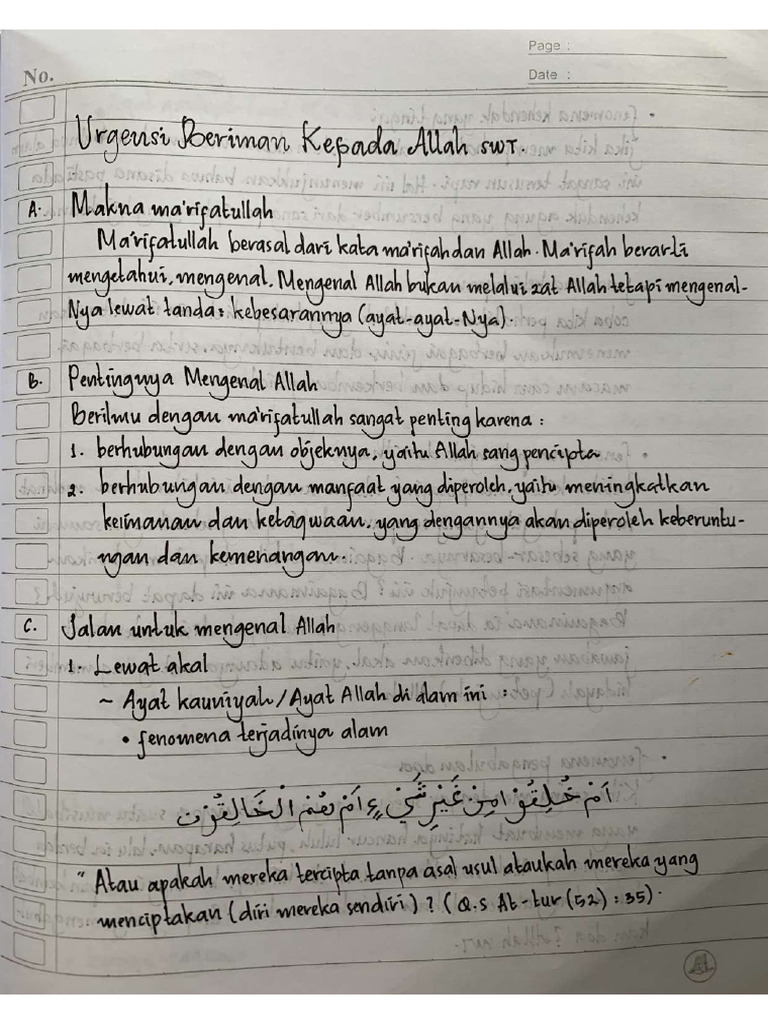 Page :
No.
Date :
Urgensi Beriman Kepada Allah SWT.
A. Makna ma'rifatullah
Ma'rifatullah berasal dari kata ma'rifah dan Allah. Ma'rifah berarti
mengetahui, mengenal. Mengenal Allah bukan melalui zat Allah tetapi mengenal-
Nya lewat tanda² kebesarannya (ayat-ayat-Nya).
B. Pentingnya Mengenal Allah
Berilmu dengan ma'rifatullah sangat penting karena :
1. berhubungan dengan objeknya, yaitu Allah sang pencipta
2. berhubungan dengan manfaat yang diperoleh, yaitu meningkatkan
keimanan dan ketaqwaan, yang dengannya akan diperoleh keberuntu-
ngan dan kemenangan.
C. Jalan untuk mengenal Allah
1. Lewat akal
~ Ayat kauniyah / Ayat Allah di alam ini :
• fenomena terjadinya alam
اَمْ خُلِقُوْا مِنْ غَيْرِ شَيْءٍ اَمْ هُمُ الْخَالِقُوْنَ
" Atau apakah mereka tercipta tanpa asal usul ataukah mereka yang
menciptakan (diri mereka sendiri) ? ( Q.s At-tur (52) : 35).